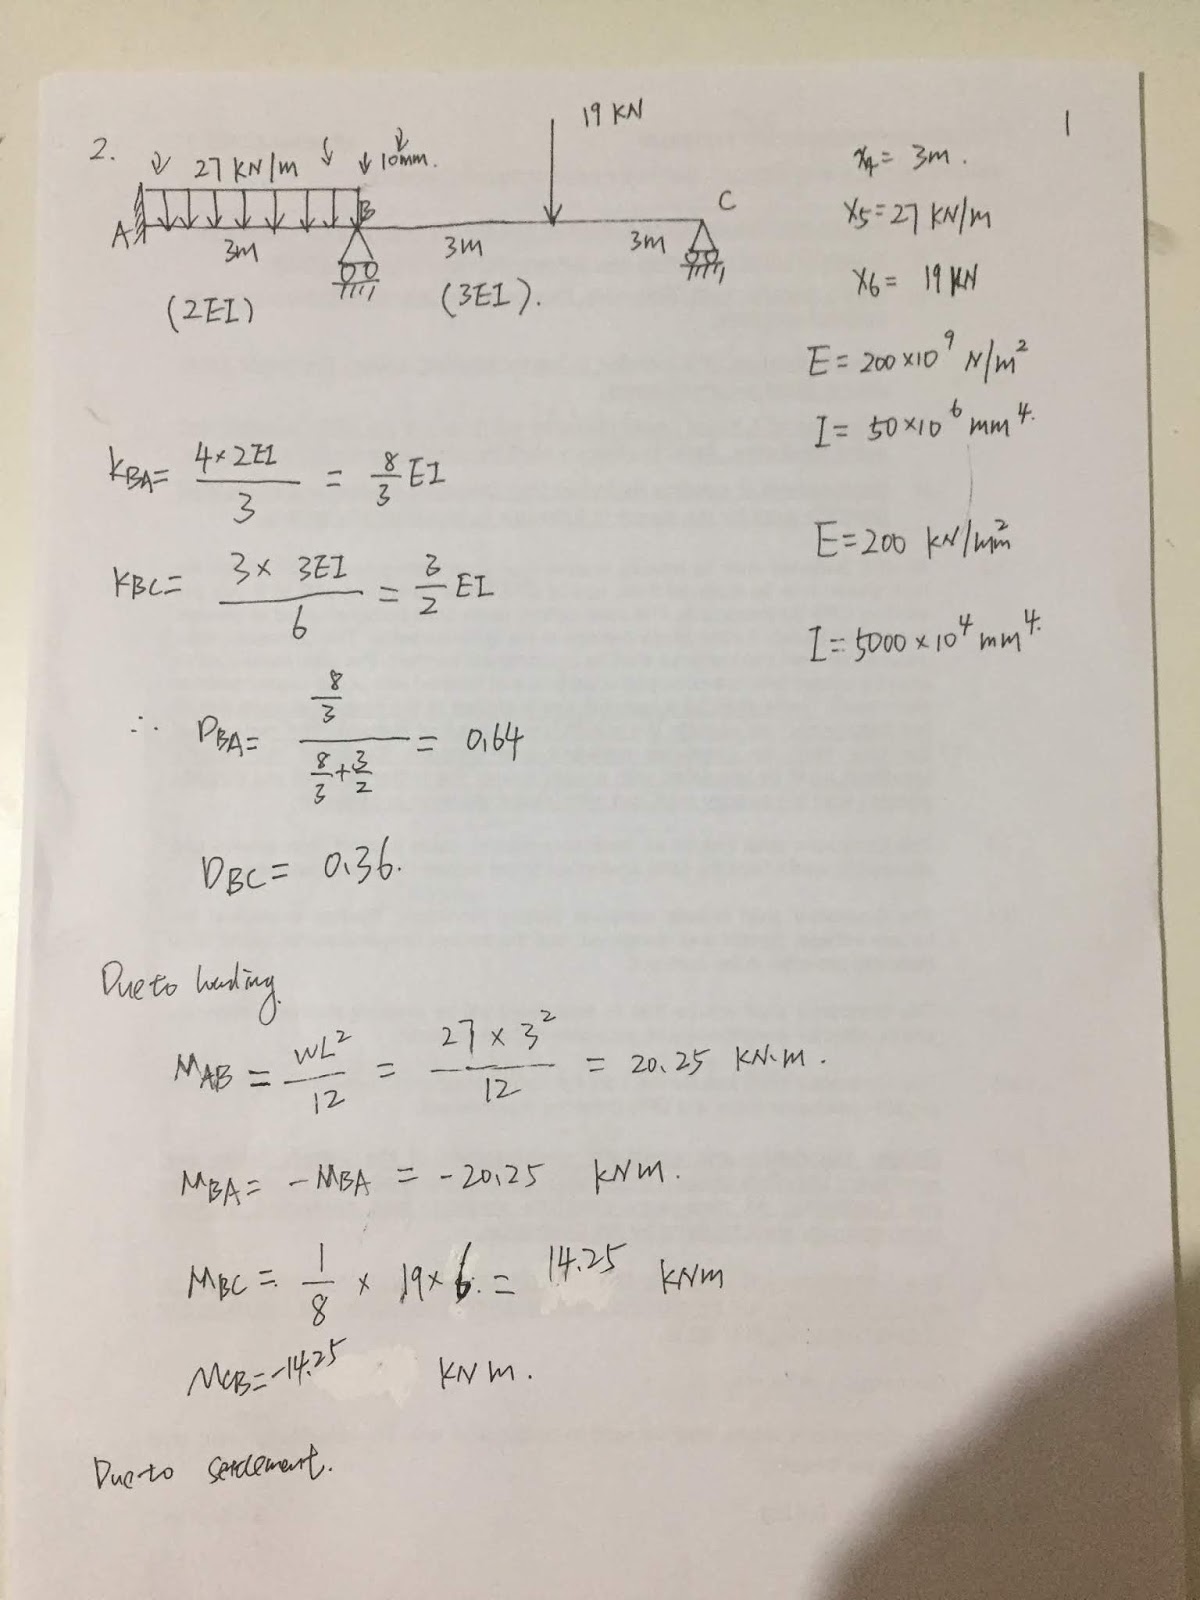 1
2. 27 KN/m 10mm. 19 KN
A B C
3m 3m 3m
(2EI) (3EI).
x4 = 3m.
x5 = 27 KN/m
x6 = 19 KN
E = 200×10⁹ N/m²
I = 50×10⁶ mm⁴.
E = 200 KN/mm²
I = 5000×10⁴ mm⁴.
KBA = 4×2EI / 3 = 8/3 EI
KBC = 3× 3EI / 6 = 3/2 EI
∴ DBA = 8/3 / (8/3 + 3/2) = 0.64
DBC = 0.36.
Due to loading.
MAB = WL² / 12 = 27 × 3² / 12 = 20.25 KN.m.
MBA = - MBA = - 20.25 KNm.
MBC = 1/8 × 19 × 6. = 14.25 KNm
MCB = -14.25 KNm.
Due to settlement.